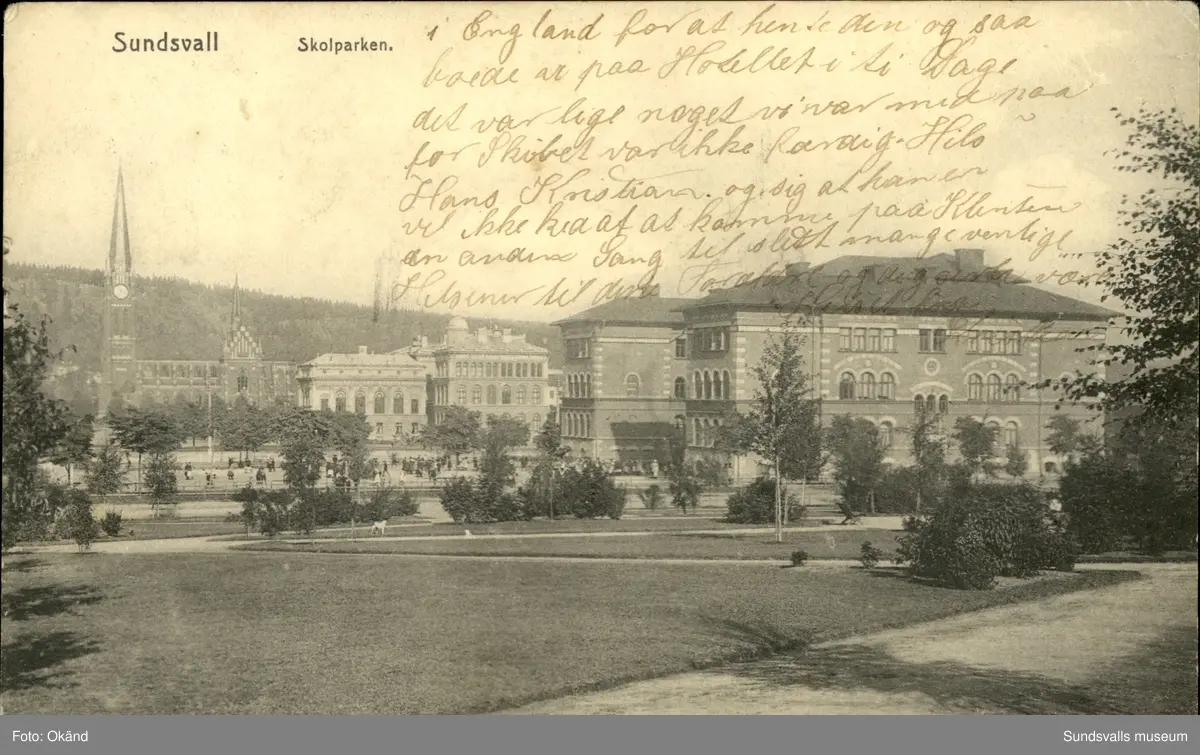 Sundsvall
Skolparken.
i England for at hente den og saa
boede vi paa Hotellet i ti Dage
det var lige noget vi var med paa
for Skibet var ikke færdig. Hils
Hans Kristian og sig at han er
vel ikke ked af at komme paa Klinten
en anden Gang til slut mange venlige
Hilsener til dine Forældre og dig selv
Foto: Okänd
Sundsvalls museum